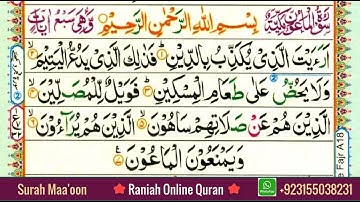 سُوْرَةُ الْمَاعُوْنِ مَكِّيَّةٌ بِسْمِ اللّٰهِ الرَّحْمٰنِ الرَّحِيْمِ وَهِيَ سَبْعُ اٰيَاتٍ
اَرَءَيْتَ الَّذِيْ يُكَذِّبُ بِالدِّيْنِ ۝١ فَذٰلِكَ الَّذِيْ يَدُعُّ الْيَتِيْمَ ۝٢
وَلَا يَحُضُّ عَلٰى طَعَامِ الْمِسْكِيْنِ ۝٣ فَوَيْلٌ لِّلْمُصَلِّيْنَ ۝٤
الَّذِيْنَ هُمْ عَنْ صَلَاتِهِمْ سَاهُوْنَ ۝٥ الَّذِيْنَ هُمْ يُرَآءُوْنَ ۝٦
وَيَمْنَعُوْنَ الْمَاعُوْنَ ۝٧
e Fajr A18
Surah Maa'oon ★ Raniah Online Quran ★ +923155038231